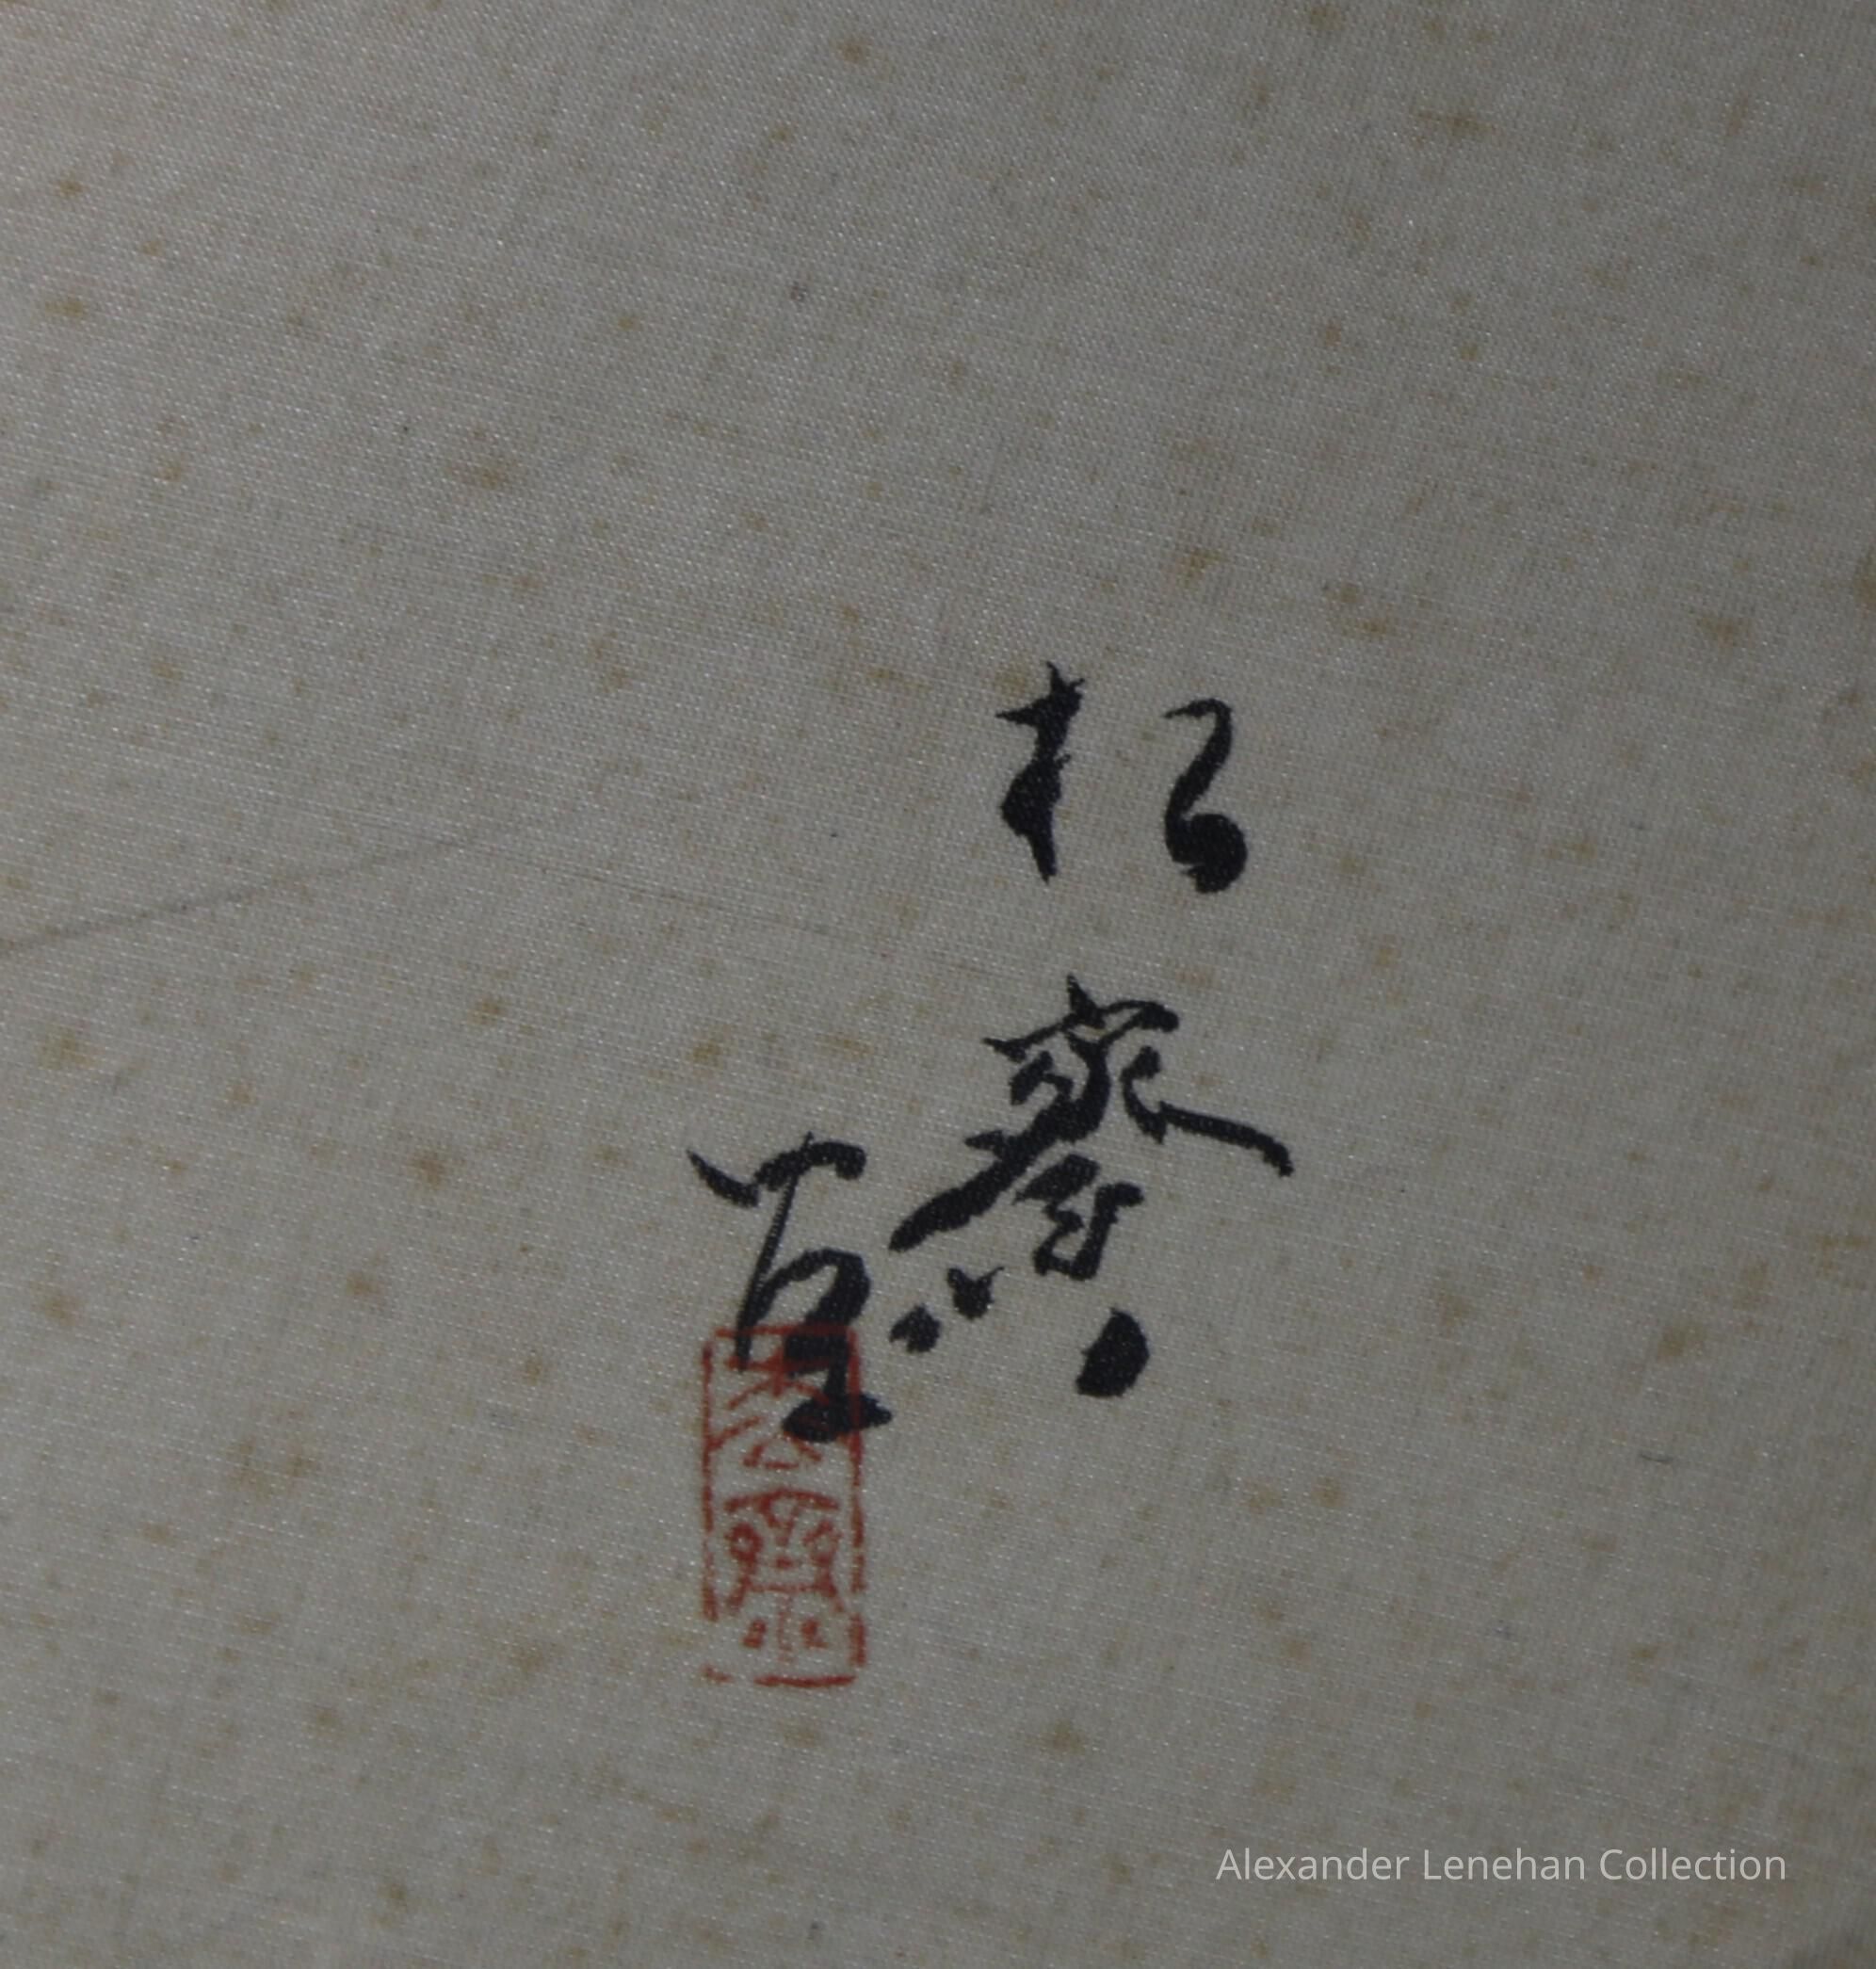 松齋
松齋
Alexander Lenehan Collection